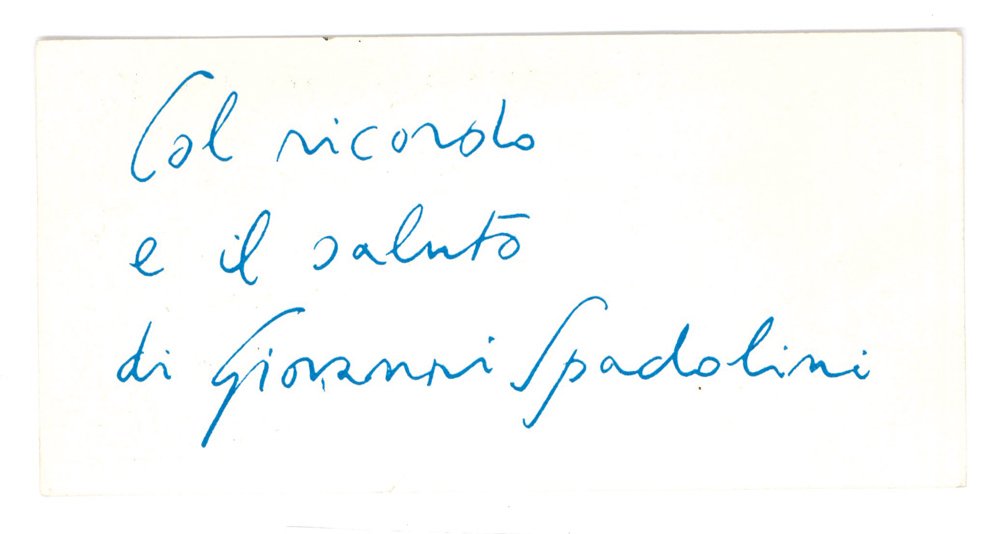 Col ricordo
e il saluto
di Giovanni Spadolini